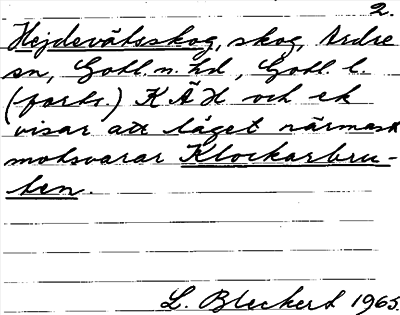 2.
Hejdevätsskog, skog, Ardre
sn, Gotl. n. hd, Gotl. l.
(forts.) KÄH och ek
visar att läget närmast
motsvarar Klockarbru-
ten.
L. Bleckert 1965.